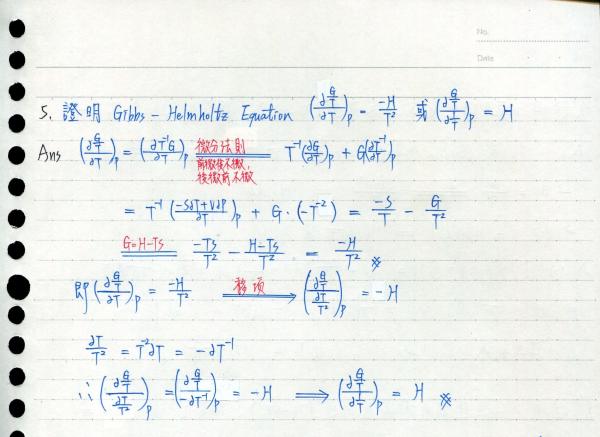 No.
Date
5. 證明 Gibbs - Helmholtz Equation (∂(G/T)/∂T)_P = -H/T² 或 (∂(G/T)/∂(1/T))_P = H
Ans (∂(G/T)/∂T)_P = (∂T⁻¹G/∂T)_P 微分法則 前微後不微, 後微前不微 T⁻¹(∂G/∂T)_P + G(∂T⁻¹/∂T)_P
= T⁻¹((-S∂T+V∂P)/∂T)_P + G·(-T⁻²) = -S/T - G/T²
G=H-TS -TS/T² - (H-TS)/T² = -H/T² ※
即 (∂(G/T)/∂T)_P = -H/T² 移項 → (∂(G/T)/(∂T/T²))_P = -H
∂T/T² = T⁻²∂T = -∂T⁻¹
∴ (∂(G/T)/(∂T/T²))_P = (∂(G/T)/-∂T⁻¹)_P = -H ⟹ (∂(G/T)/∂(1/T))_P = H ※